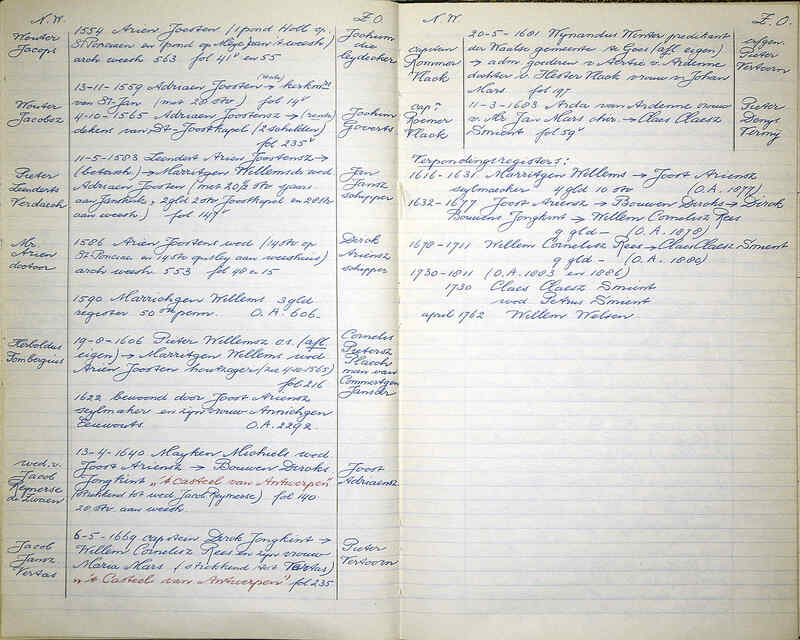 N.W.
Z.O.
1554 Arien Joosten (1 pond Holl op
Wouter
Jacops
St. Poncien en 1 pond op Aleye Jan 't weesh.)
arch weesh 563 fol 41v en 55
Jochem
die
leydecker
13-11-1559 Adriaen Joosten → kerkmrs
van St-Jan (met 20 stv) fol 14v
Wouter
Jacobsz
4-10-1565 Adriaen Joostensz → (rente)
dekens van St-Joostkapel (2 schilden)
fol 235v
Jochim
Goverts
11-5-1583 Leendert Arien Joostensz →
(betaesh) → Marritgen Willemsdr wed
Adriaen Joosten (met 20½ stv sjaars
aan weesh) fol 147v
Pieter
Leenderts
Verdaech
Jan
Jansz
schipper
Mr.
Arien
doctor
1586 Arien Joostens wed (14 stv op
arch weesh. 553 fol 48 en 15
Dirck
Ariensz
schipper
1590 Marrichgen Willems 3 gld
register 50ste penn. O.A. 606.
Herboldus
Tombergius
19-8-1606 Pieter Willemsz c.s. (afl.
eigen) → Marritgen Willems wed
Arien Joosten houtzager (zie 4-10-1565)
fol 216
Cornelis
Pietersz
Plaech
man van
Commertgen
Jansdr
1622 bewoond door Joost Ariensz
seylmaker en zijn vrouw Annichgen
Eeuwouts. O.A. 2292
13-4-1640 Mayken Michiels wed
Joost Ariensz → Bouwen Dircks
Jongkint "'t Casteel van Antwerpen"
(strekkend tot wed Jacob Reymerse) fol 140
20 stv aan weesh.
wed. v.
Jacob
Reymerse
de Zwaen
Joost
Adriaensz
Jacob
Jansz
Vertas
6-5-1669 capitein Dirck Jongkint →
Willem Cornelisz Rees en zijn vrouw
Maria Mars (strekkend tot Vertas)
"'t Casteel van Antwerpen" fol 235
Pieter
Vertoorn
N.W.
Z.O.
capitan
Rommer
Vlack
20-5-1601 Wynandus Winter predikant
der Waalse gemeente te Goes (afl eigen)
→ adm goederen v Aertie v. Ardenne
dochter v. Hester Vlack vrouw v Johan
Mars. fol 197
erfgen.
Pieter
Vertoorn
capn
Roemer
Vlack
11-3-1603 Anda van Ardenne vrouw
v. Mr Jan Mars chir. → Claes Claesz
Smient fol 59v
Pieter
Denys
Vermy
Verpondingsregisters:
1616-1631 Marritgen Willems → Joost Ariensz
seylmaecker 4 gld 10 stv (O.A. 1877)
1632-1677 Joost Ariensz → Bouwen Dircks → Dirck
Bouwens Jongkint → Willem Cornelisz Rees
9 gld - (O.A. 1878)
1678-1711 Willem Cornelisz Rees → Claes Claesz Smient
9 gld - (O.A. 1880)
1730-1811 (O.A. 1883 en 1886)
1730 Claes Claesz Smient
wed Petrus Smient
april 1762 Willem Welsen.